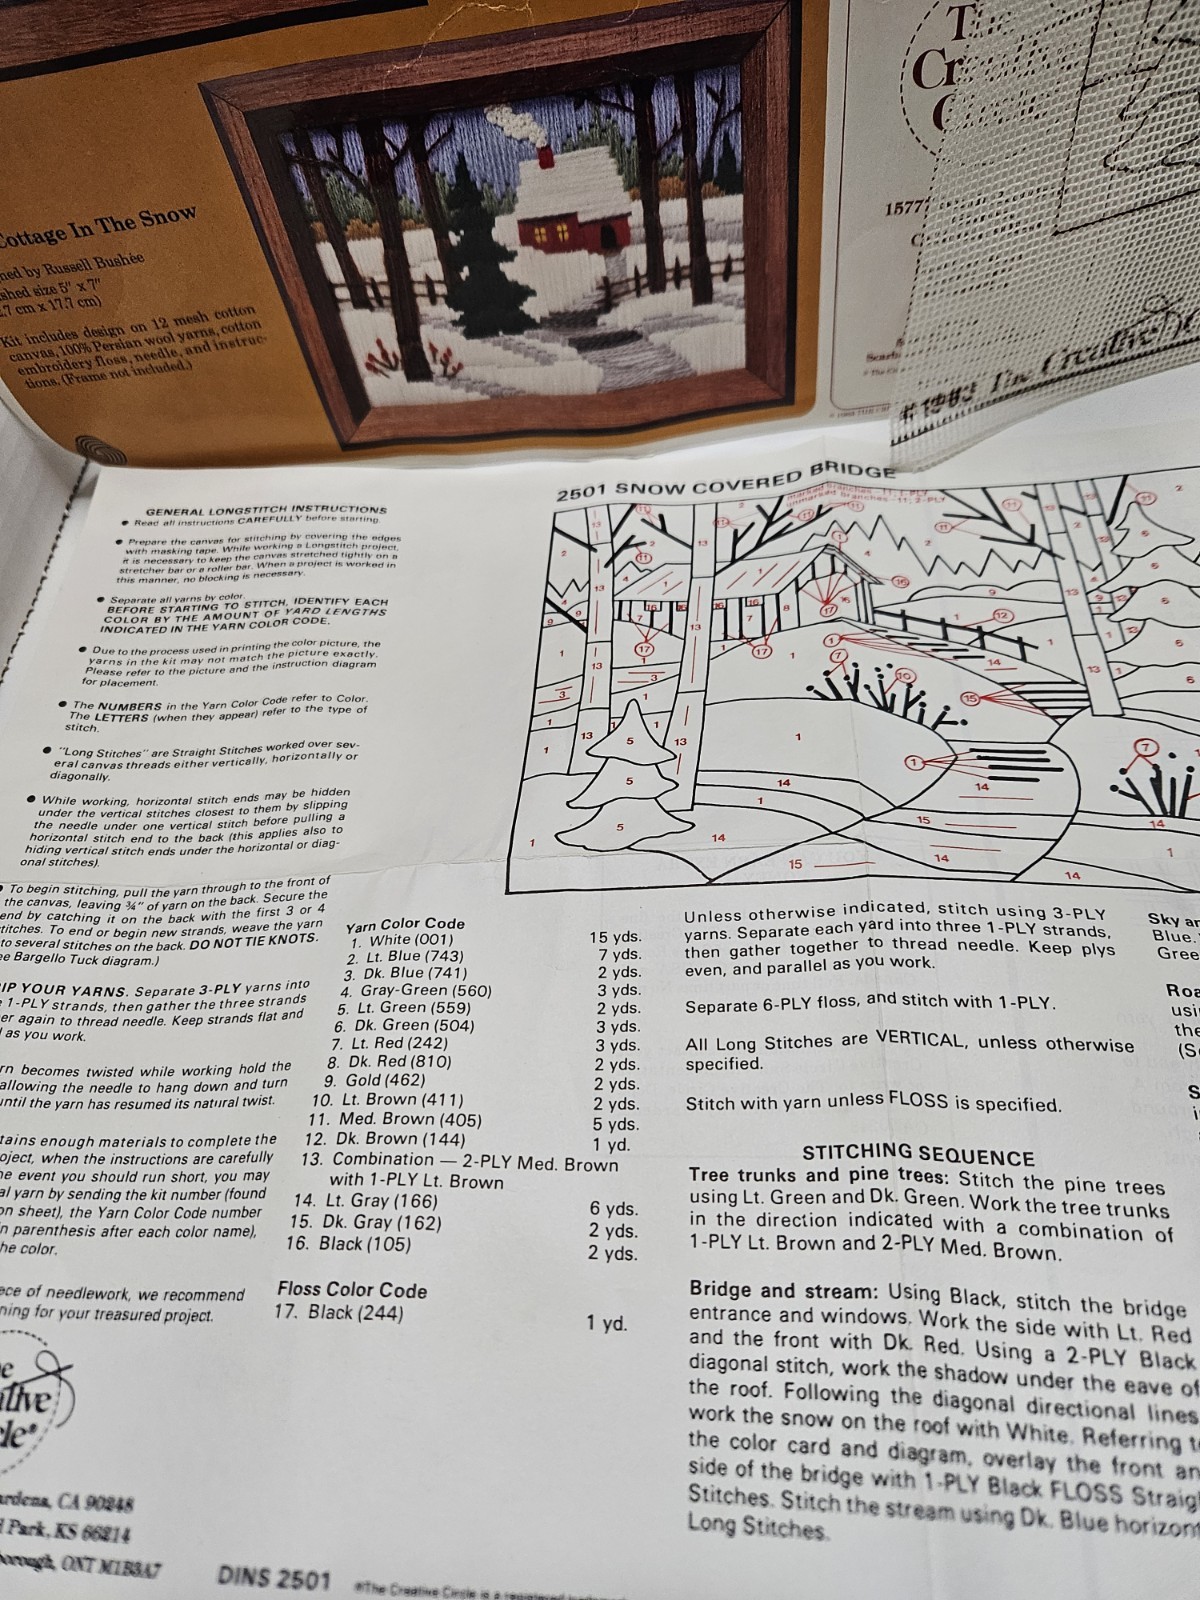 Cottage In The Snow
ned by Russell Bushée
shed size 5" x 7"
.7 cm x 17.7 cm)
Kit includes design on 12 mesh cotton
canvas, 100% Persian wool yarns, cotton
embroidery floss, needle, and instruc-
tions. (Frame not included.)
The
1577
The Creative
GENERAL LONGSTITCH INSTRUCTIONS
● Read all instructions CAREFULLY before starting.
● Prepare the canvas for stitching by covering the edges
with masking tape. While working a Longstitch project,
it is necessary to keep the canvas stretched tightly on a
stretcher bar or a roller bar. When a project is worked in
this manner, no blocking is necessary.
● Separate all yarns by color.
BEFORE STARTING TO STITCH, IDENTIFY EACH
COLOR BY THE AMOUNT OF YARD LENGTHS
INDICATED IN THE YARN COLOR CODE.
● Due to the process used in printing the color picture, the
yarns in the kit may not match the picture exactly.
Please refer to the picture and the instruction diagram
for placement.
● The NUMBERS in the Yarn Color Code refer to Color.
The LETTERS (when they appear) refer to the type of
stitch.
● "Long Stitches" are Straight Stitches worked over sev-
eral canvas threads either vertically, horizontally or
diagonally.
● While working, horizontal stitch ends may be hidden
under the vertical stitches closest to them by slipping
the needle under one vertical stitch before pulling a
horizontal stitch end to the back (this applies also to
hiding vertical stitch ends under the horizontal or diag-
onal stitches).
● To begin stitching, pull the yarn through to the front of
the canvas, leaving ¾" of yarn on the back. Secure the
end by catching it on the back with the first 3 or 4
titches. To end or begin new strands, weave the yarn
to several stitches on the back. DO NOT TIE KNOTS.
ee Bargello Tuck diagram.)
IP YOUR YARNS. Separate 3-PLY yarns into
1-PLY strands, then gather the three strands
er again to thread needle. Keep strands flat and
l as you work.
rn becomes twisted while working hold the
allowing the needle to hang down and turn
until the yarn has resumed its natural twist.
tains enough materials to complete the
oject, when the instructions are carefully
he event you should run short, you may
al yarn by sending the kit number (found
on sheet), the Yarn Color Code number
n parenthesis after each color name),
he color.
ece of needlework, we recommend
ning for your treasured project.
ardena, CA 90248
l Park, KS 66214
borough, ONT M1B3A7
DINS 2501
®The Creative Circle is a registered
2501 SNOW COVERED BRIDGE
marked branches - 11; 1-PLY
unmarked branches - 11; 2-PLY
Yarn Color Code
1. White (001) 15 yds.
2. Lt. Blue (743) 7 yds.
3. Dk. Blue (741) 2 yds.
4. Gray-Green (560) 3 yds.
5. Lt. Green (559) 2 yds.
6. Dk. Green (504) 3 yds.
7. Lt. Red (242) 3 yds.
8. Dk. Red (810) 2 yds.
9. Gold (462) 2 yds.
10. Lt. Brown (411) 2 yds.
11. Med. Brown (405) 5 yds.
12. Dk. Brown (144) 1 yd.
13. Combination — 2-PLY Med. Brown
with 1-PLY Lt. Brown
14. Lt. Gray (166) 6 yds.
15. Dk. Gray (162) 2 yds.
16. Black (105) 2 yds.
Floss Color Code
17. Black (244) 1 yd.
Unless otherwise indicated, stitch using 3-PLY
yarns. Separate each yard into three 1-PLY strands,
then gather together to thread needle. Keep plys
even, and parallel as you work.
Separate 6-PLY floss, and stitch with 1-PLY.
All Long Stitches are VERTICAL, unless otherwise
specified.
Stitch with yarn unless FLOSS is specified.
STITCHING SEQUENCE
Tree trunks and pine trees: Stitch the pine trees
using Lt. Green and Dk. Green. Work the tree trunks
in the direction indicated with a combination of
1-PLY Lt. Brown and 2-PLY Med. Brown.
Bridge and stream: Using Black, stitch the bridge
entrance and windows. Work the side with Lt. Red
and the front with Dk. Red. Using a 2-PLY Black
diagonal stitch, work the shadow under the eave of
the roof. Following the diagonal directional lines,
work the snow on the roof with White. Referring to
the color card and diagram, overlay the front an
side of the bridge with 1-PLY Black FLOSS Straig
Stitches. Stitch the stream using Dk. Blue horizon
Long Stitches.
Sky a
Blue.
Gree
Roa
usi
the
(S